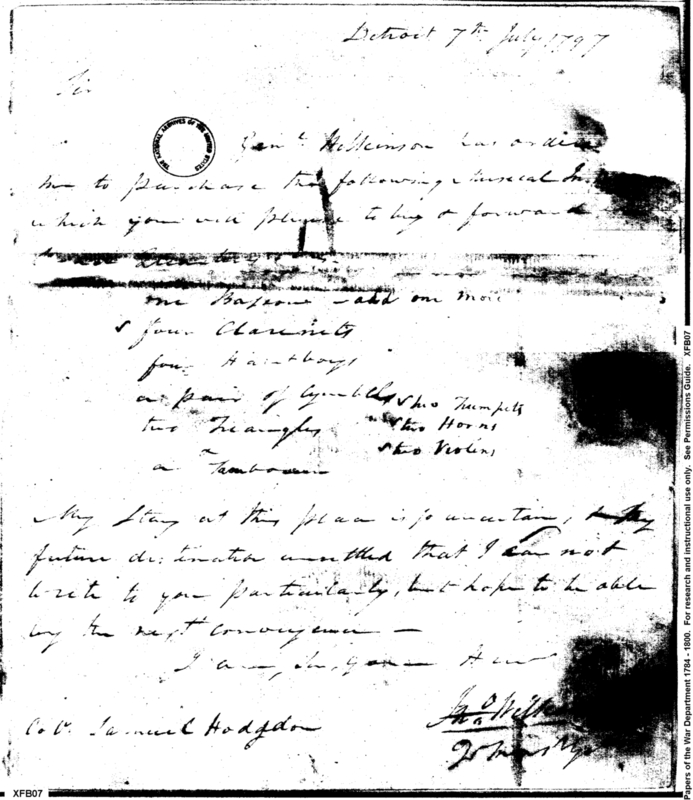 Detroit 7th July 1797
Sir
THE NATIONAL ARCHIVES OF THE UNITED STATES
Genl. Wilkinson has
me to purchase the following Musical
which you will please to buy & forward
one Bassoon - and one more
four Clarinets
four Hautboys
a pair of Cymbells
two Trumpets
two Triangles
two Horns
two Violens
a Tamboreen
My Stay at this place is so uncertain, & my
future destination unsettled that I can not
write to you particularly, but hope to be able
by the next conveyance -
I am, Sir,
Col. Samuel Hodgdon
Jno Wilk
Qr
XFB07
Papers of the War Department 1784 - 1800. For research and instructional use only. See Permissions Guide. XFB07